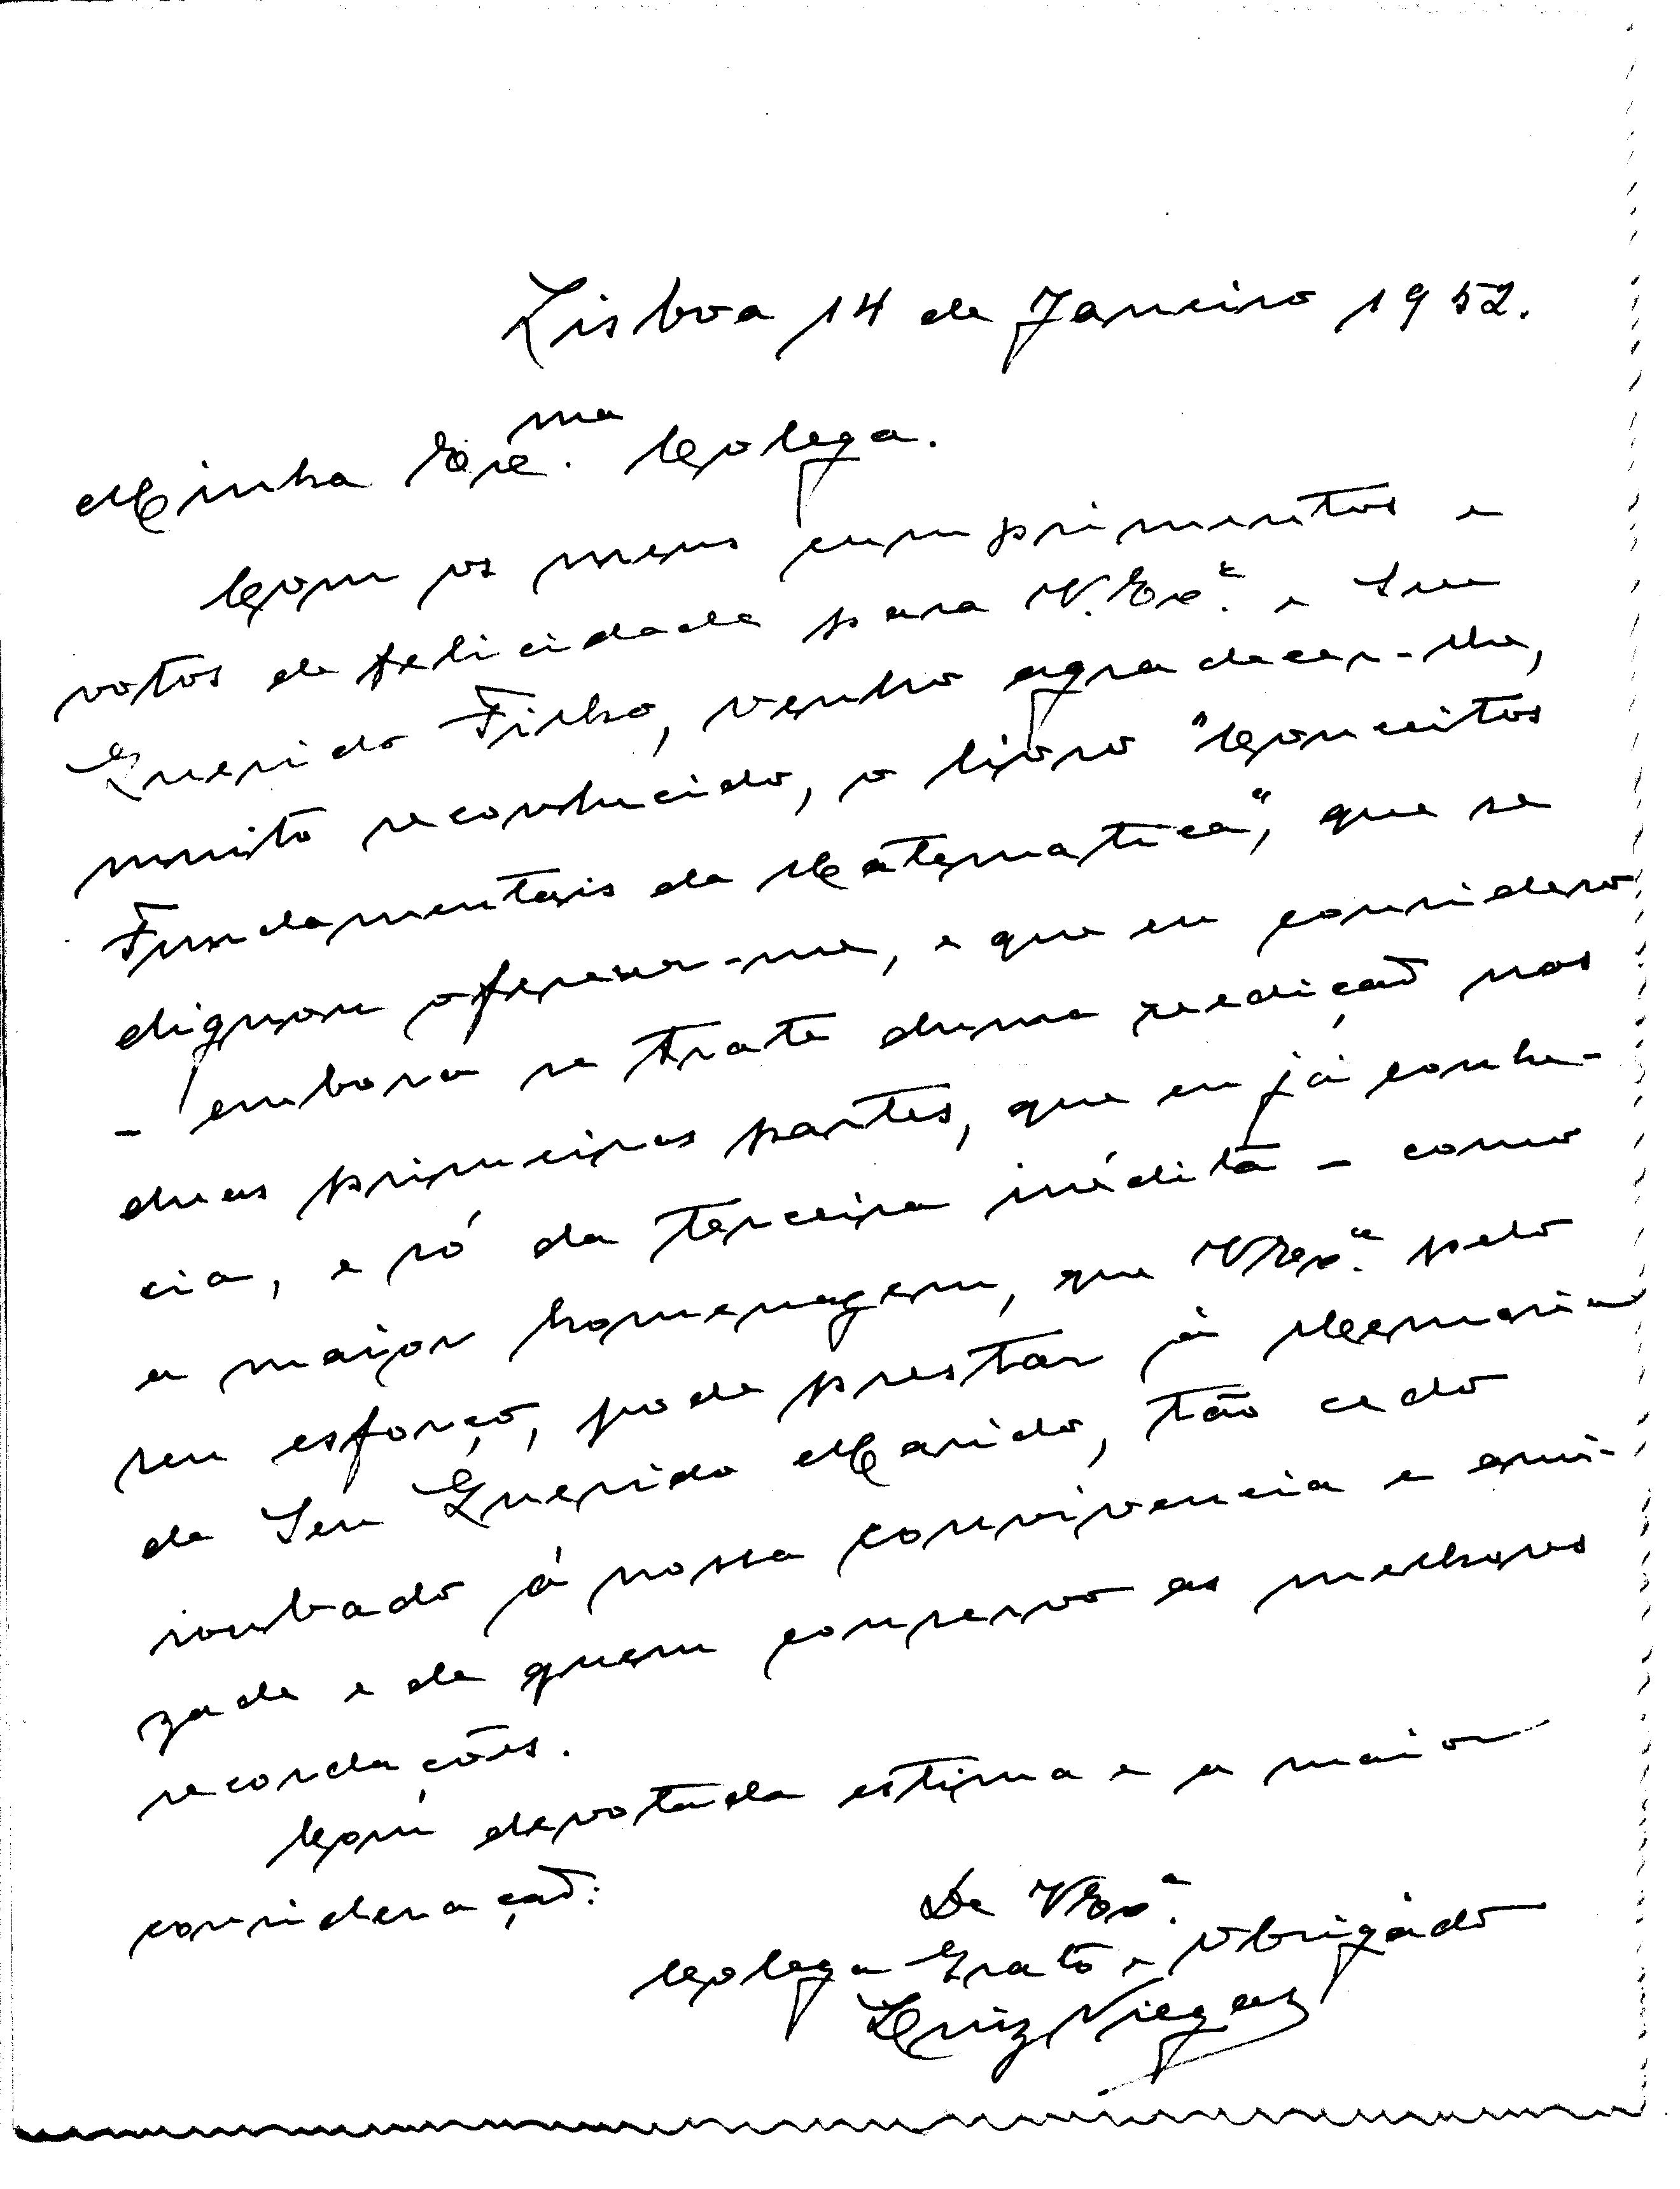 Lisboa 14 de Janeiro 1952.
Minha Exᵐᵃ. Colega.
Com os meus cumprimentos e
votos de felicidade para V. Exª. e Seu
Querido Filho, venho agradecer-lhe,
muito reconhecido, o livro "Conceitos
Fundamentais da Matematica", que se
dignou oferecer-me, e que eu considero
- embora se trate duma reedição nas
duas primeiras partes, que eu já conhe-
cia, e só da terceira inédita - como
a maior homenagem, que V Exª. pelo
seu esforço, pode prestar á Memoria
de Seu Querido Marido, tão cedo
roubado á nossa convivencia e ami-
zade e de quem conservo as melhores
recordações.
Com devotada estima e a maior
consideração:
De V Exª.
Colega Grato e Obrigado
Luiz Viegas